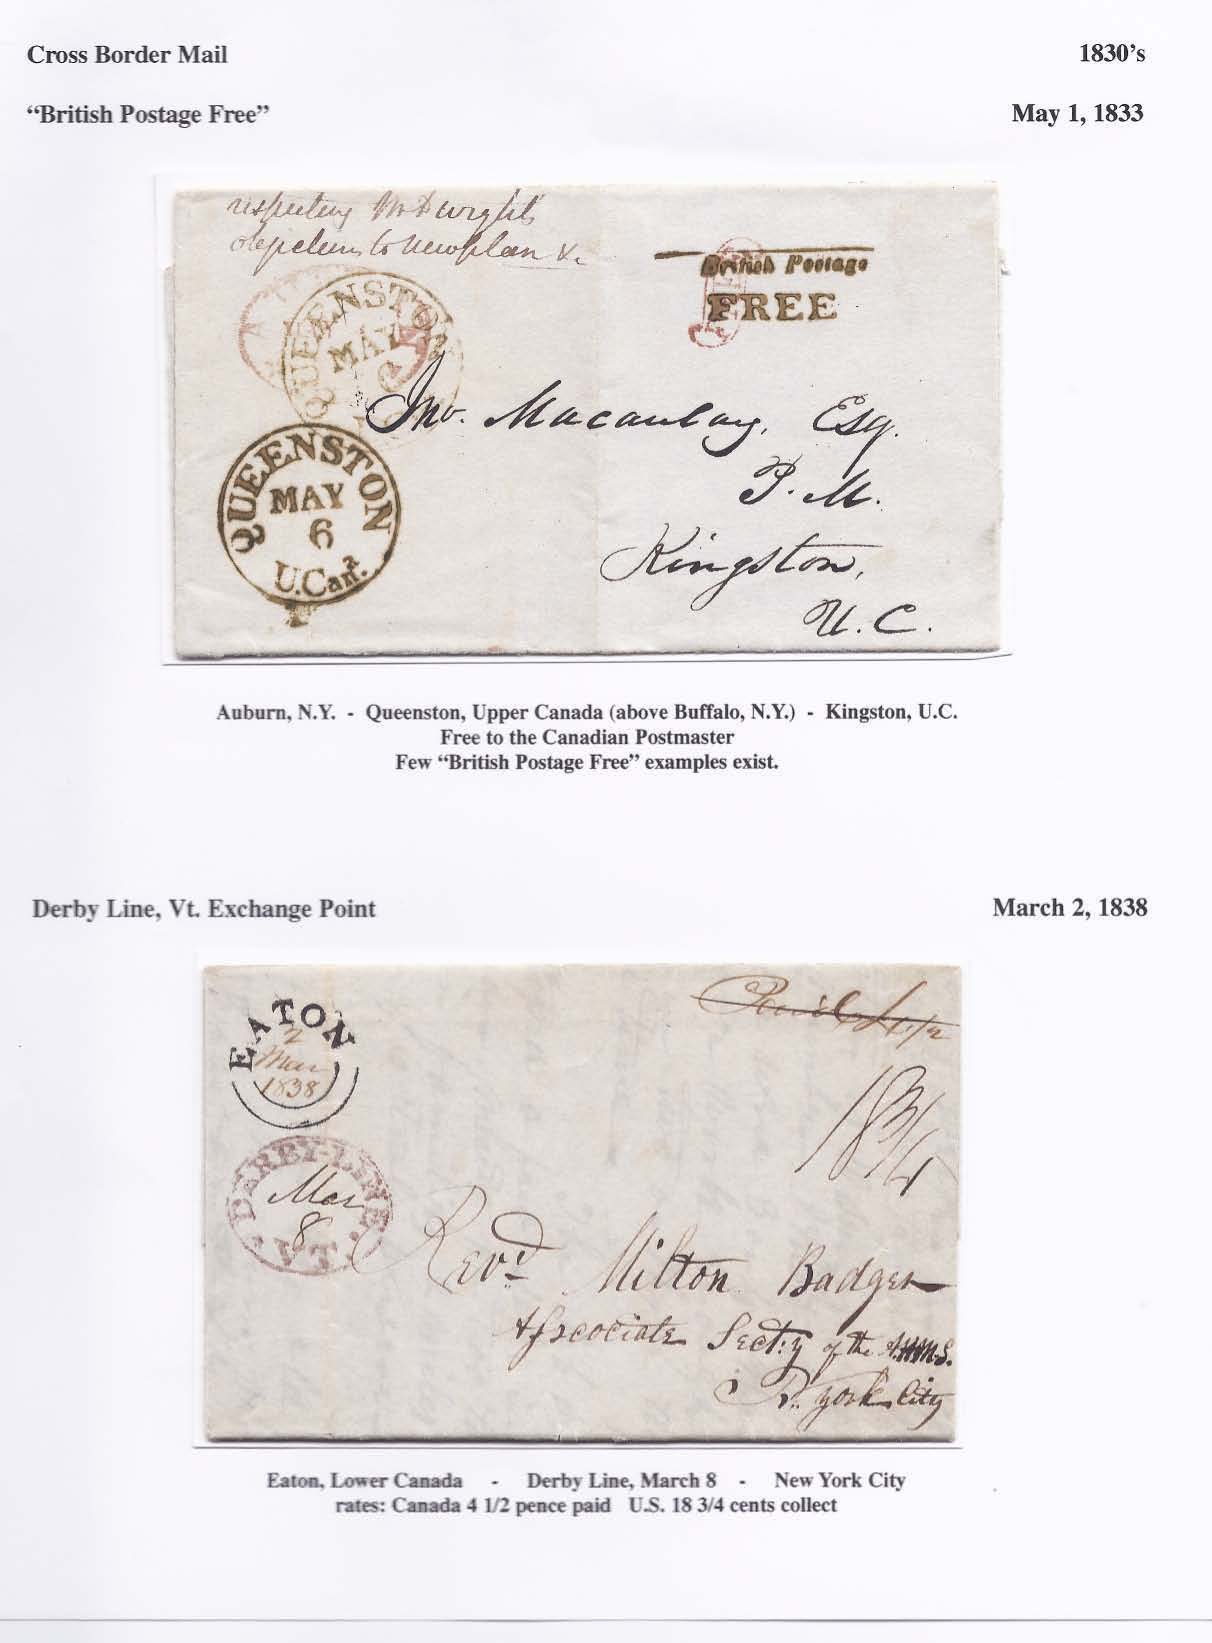 Cross Border Mail 1830's
“British Postage Free” May 1, 1833
respecting Mr Dwight's
to &c
British Postage
FREE
QUEENSTON
MAY
6
QUEENSTON
MAY
6
U.Cana.
Jno. Macaulay, Esq.
P. M.
Kingston,
U. C.
Auburn, N.Y. - Queenston, Upper Canada (above Buffalo, N.Y.) - Kingston, U.C.
Free to the Canadian Postmaster
Few “British Postage Free” examples exist.
Derby Line, Vt. Exchange Point March 2, 1838
Paid 4 1/2
EATON
2
Mar
1838
18 3/4
DERBY-LINE.
Mar
8
VT.
Revd Milton Badger
Associate Sect:y of the A.H.M.S.
N. York City
Eaton, Lower Canada - Derby Line, March 8 - New York City
rates: Canada 4 1/2 pence paid U.S. 18 3/4 cents collect